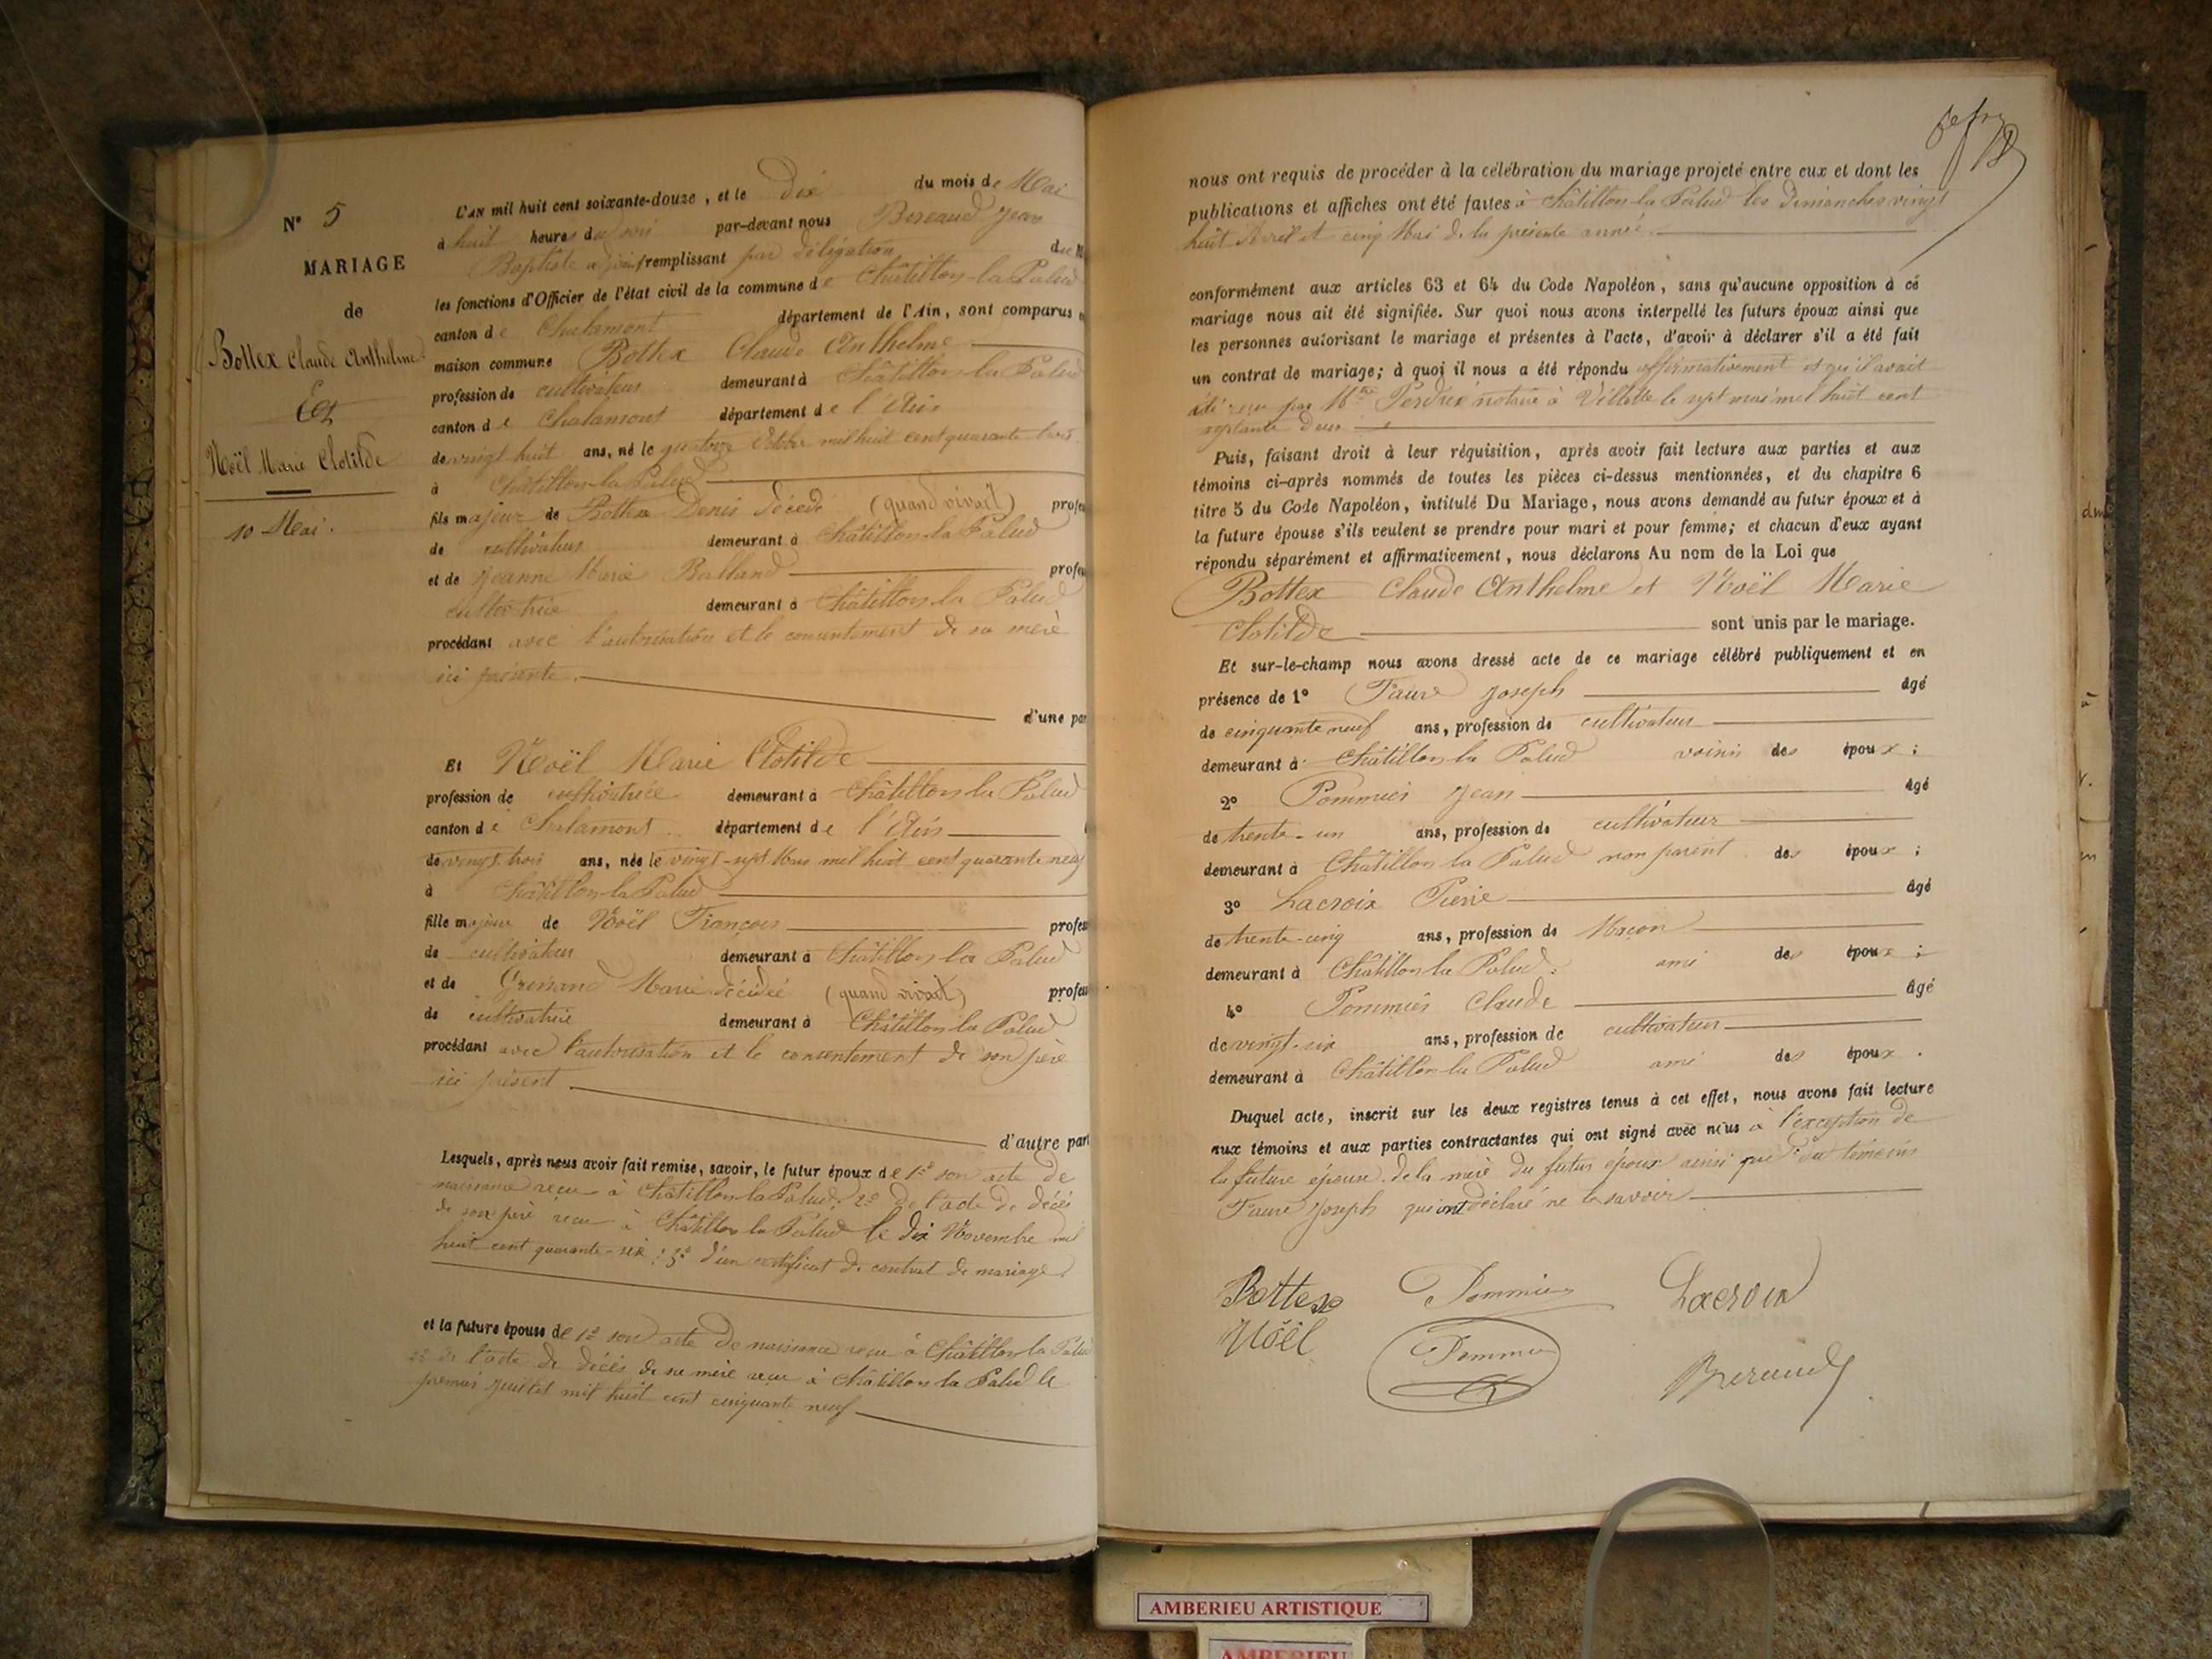 N° 5
MARIAGE
de
Bottex Claude Anthelme
Et
Noël Marie Clotilde
10 Mai.
L'AN mil huit cent soixante-douze, et le Dix du mois de Mai
à huit heures du soir par-devant nous Bereaud Jean
Baptiste adjoint remplissant par délégation du
les fonctions d'Officier de l'état civil de la commune de Châtillon-la-Palud
canton de Chalamont département de l'Ain, sont comparus
maison commune Bottex Claude Anthelme
profession de cultivateur demeurant à Châtillon-la Palud
canton de Chalamont département de l'Ain
de vingt huit ans, né le quatorze Octobre mil huit cent quarante trois
à Châtillon-la Palud
fils majeur de Bottex Denis décédé (quand vivait) profes
de cultivateur demeurant à Châtillon-la Palud
et de Jeanne Marie Balland profes
cultivatrice demeurant à Châtillon-la Palud
procédant avec l'autorisation et le consentement de sa mère
ici présente.
d'une par
Et Noël Marie Clotilde
profession de cultivatrice demeurant à Châtillon la Palud
canton de Chalamont département de l'Ain
de vingt-trois ans, née le vingt-sept Mars mil huit cent quarante neuf
à Châtillon-la Palud
fille majeure de Noël François profes
de cultivateur demeurant à Châtillon la Palud
et de Marie décédée (quand vivait) profes
de cultivatrice demeurant à Châtillon la Palud
procédant avec l'autorisation et le consentement de son père
ici présent
d'autre part
Lesquels, après nous avoir fait remise, savoir, le futur époux de 1° son acte de
naissance reçu à Châtillon la Palud; 2° de l'acte de décès
de son père reçu à Châtillon la Palud le dix Novembre mil
huit cent quarante-six; 3° d'un certificat de contrat de mariage.
et la future épouse de 1° son acte de naissance reçu à Châtillon la Palud
2° de l'acte de décès de sa mère reçu à Châtillon la Palud le
premier Juillet mil huit cent cinquante neuf
nous ont requis de procéder à la célébration du mariage projeté entre eux et dont les
publications et affiches ont été faites à Châtillon-la Palud les Dimanches vingt
huit Avril et cinq Mai de la présente année.
conformément aux articles 63 et 64 du Code Napoléon, sans qu'aucune opposition à ce
mariage nous ait été signifiée. Sur quoi nous avons interpellé les futurs époux ainsi que
les personnes autorisant le mariage et présentes à l'acte, d'avoir à déclarer s'il a été fait
un contrat de mariage; à quoi il nous a été répondu affirmativement et qu'il avait
été reçu par Mtre Perdrix notaire à Villette le sept mai mil huit cent
septante deux
Puis, faisant droit à leur réquisition, après avoir fait lecture aux parties et aux
témoins ci-après nommés de toutes les pièces ci-dessus mentionnées, et du chapitre 6
titre 5 du Code Napoléon, intitulé Du Mariage, nous avons demandé au futur époux et à
la future épouse s'ils veulent se prendre pour mari et pour femme; et chacun d'eux ayant
répondu séparément et affirmativement, nous déclarons Au nom de la Loi que
Bottex Claude Anthelme et Noël Marie
Clotilde sont unis par le mariage.
Et sur-le-champ nous avons dressé acte de ce mariage célébré publiquement et en
présence de 1° Faure Joseph âgé
de cinquante neuf ans, profession de cultivateur
demeurant à Châtillon la Palud voisin des époux;
2° Pommier Jean âgé
de trente-un ans, profession de cultivateur
demeurant à Châtillon la Palud non parent des époux;
3° Lacroix Pierre âgé
de trente-cinq ans, profession de Maçon
demeurant à Châtillon la Palud. ami des époux;
4° Pommier Claude âgé
de vingt-six ans, profession de cultivateur
demeurant à Châtillon la Palud ami des époux.
Duquel acte, inscrit sur les deux registres tenus à cet effet, nous avons fait lecture
aux témoins et aux parties contractantes qui ont signé avec nous à l'exception de
la future épouse de la mère du futur époux ainsi que du témoin
Faure Joseph qui ont déclaré ne le savoir
Bottex Pommier Lacroix
Noël Pommier Beraud
AMBERIEU ARTISTIQUE
AMBERIEU